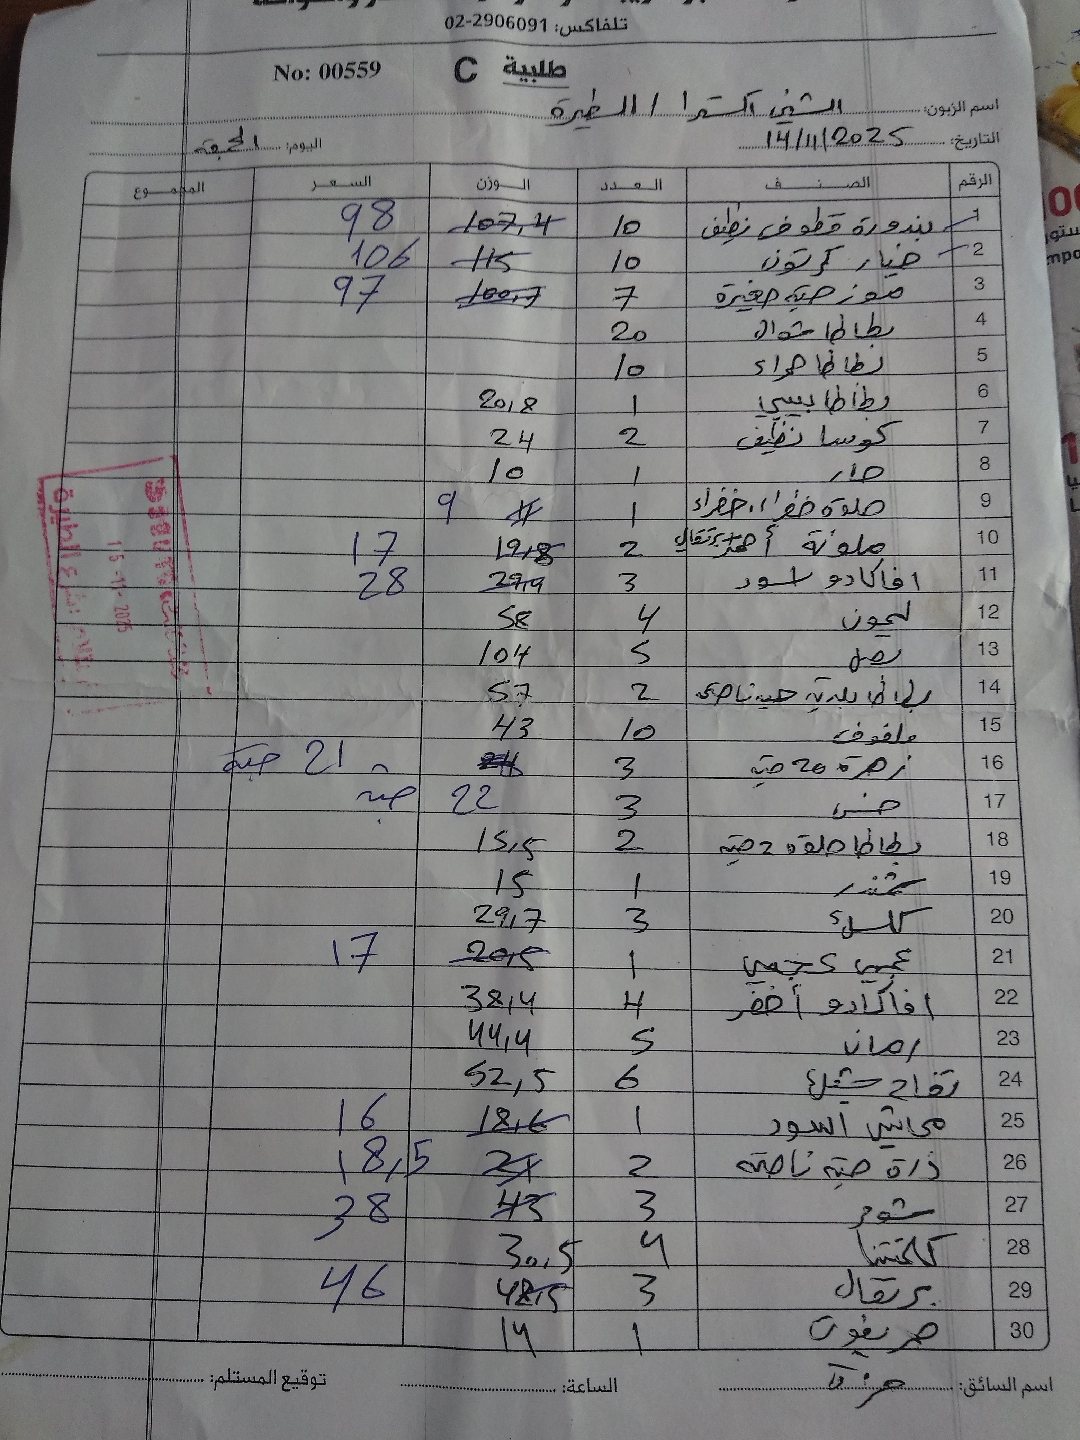 تلفاكس: 02-2906091
No: 00559 C طلبية
اسم الزبون: الشني اكسترا / الطيرة
التاريخ: 14/11/2025 اليوم: الجمعة
الرقم الصنف العدد الوزن السعر المجموع
1 بندورة قطوف نظيف 10 107,4 98
2 خيار كرتون 10 115 106
3 موز حبة صغيرة 7 100,7 97
4 بطاطا شوال 20
5 بطاطا حمراء 10
6 بطاطا بيبي 1 20,8
7 كوسا نظيف 2 24
8 حار 1 10
9 حلوة خضراء، خضراء 1 11 9
10 ملونة أحمر برتقالي 2 19,8 17
11 افاكادو اسود 3 29,9 28
12 ليمون 4 58
13 بصل 5 104
14 بطاطا بلدية حبة ناصحة 2 57
15 ملفوف 10 43
16 زهرة 20 حبة 3 21 حبة
17 خس 3 22 حبه
18 بطاطا حلوة 2 15,5
19 شمندر 1 15
20 كلسك 3 29,7
21 عجمي 1 20,5 17
22 افاكادو أخضر 4 38,4
23 رمان 5 44,4
24 تفاح 6 52,5
25 محاشي اسود 1 18,6 16
26 ذرة حبة ناصحة 2 21 18,5
27 شومر 3 43 38
28 كلمنتينا 4 30,5
29 برتقال 3 48,5 46
30 جريفوت 1 14
اسم السائق: الساعة: توقيع المستلم: